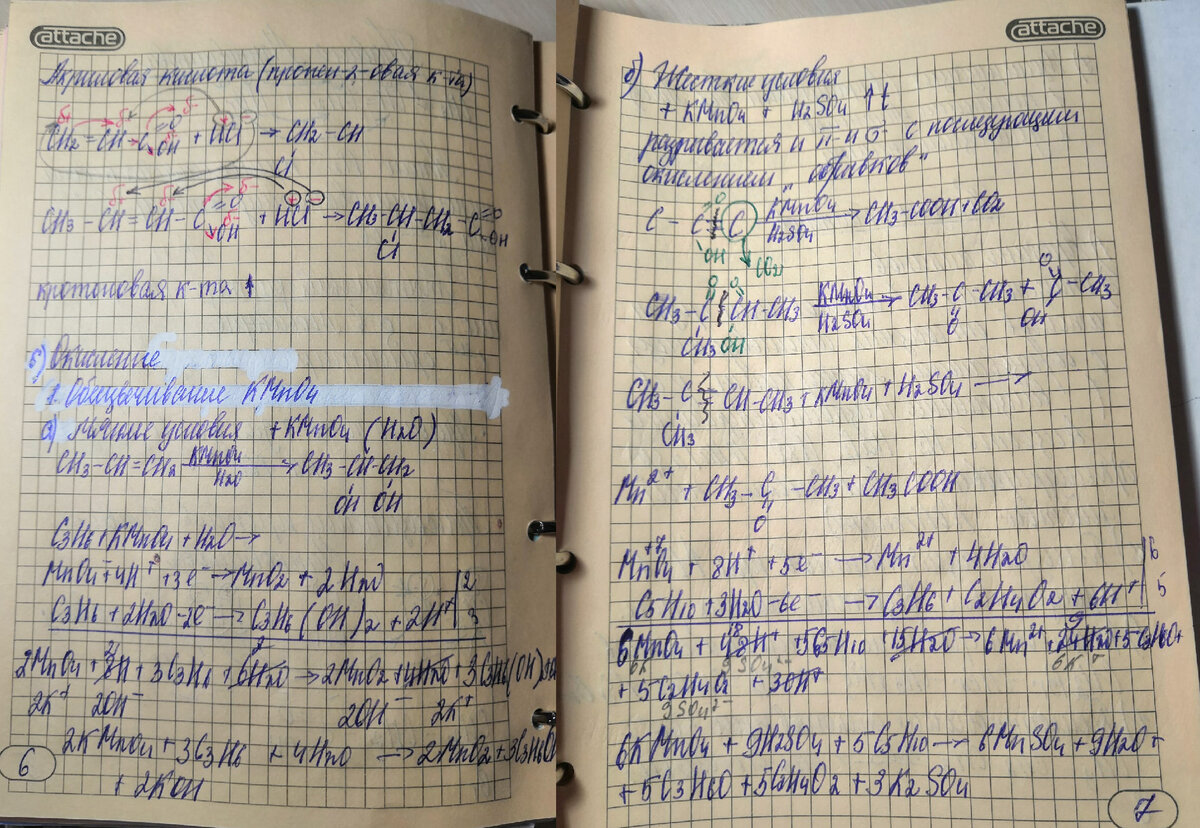 attache
Акриловая кислота (пропен-2-овая к-та)
CH2 = CH - C =O OH + HCl → CH2 - CH
Cl
CH3 - CH = CH - C =O OH + HCl → CH3 - CH - CH2 - C =O - OH
Cl
кротоновая к-та
б) Окисление
1. Обесцвечивание KMnO4
а) условия + KMnO4 (H2O)
CH3 - CH = CH2 KMnO4 H2O → CH3 - CH - CH2
OH OH
C3H6 + KMnO4 + H2O →
MnO4⁻ + 4H⁺ + 3e⁻ → MnO2 + 2H2O | 2
C3H6 + 2H2O - 2e⁻ → C3H6(OH)2 + 2H⁺ | 3
2MnO4 + 8H + 3C3H6 + 6H2O → 2MnO2 + 4H2O + 3C3H6(OH)2
2K⁺ 2OH⁻ 2OH⁻ 2K⁺
2KMnO4 + 3C3H6 + 4H2O → 2MnO2 + 3C3H8O2
+ 2KOH
6
attache
б) Жесткие условия
+ KMnO4 + H2SO4 ↑ t
разрывается и π и σ с последующим
окислением „обрывков"
C - C = C KMnO4 H2SO4 → CH3-COOH + CO2
OH CO2
CH3 - C = CH - CH3 KMnO4 H2SO4 → CH3 - C - CH3 + C - CH3
CH3 OH O OH
CH3 - C = CH - CH3 + KMnO4 + H2SO4 →
CH3
Mn²⁺ + CH3 - C - CH3 + CH3COOH
O
MnO4 + 8H⁺ + 5e⁻ → Mn²⁺ + 4H2O | 6
C5H10 + 3H2O - 6e⁻ → C3H6 + C2H4O2 + 6H⁺ | 5
6MnO4 + 48H⁺ + 5C5H10 + 15H2O → 6Mn²⁺ + 24H2O + 5C3H6O +
6K 9SO4²⁻ 6K⁺
+ 5C2H4O2 + 30H⁺
9SO4²⁻
6KMnO4 + 9H2SO4 + 5C5H10 → 6MnSO4 + 9H2O +
+ 5C3H6O + 5C2H4O2 + 3K2SO4
7